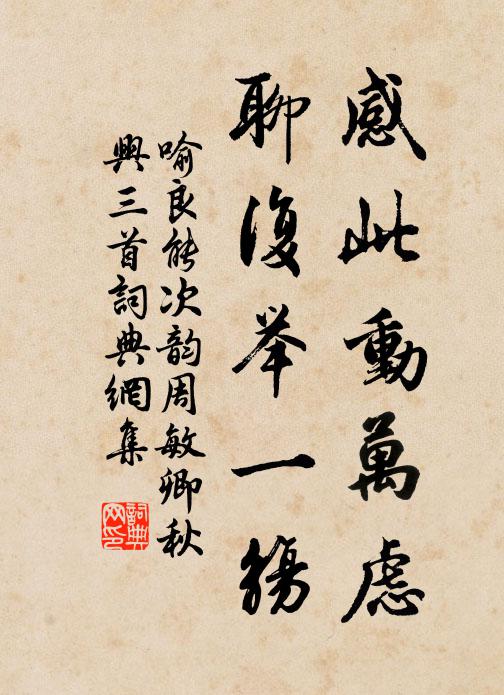 感此動萬慮
聊復举一觴
喻良能次韵周敏卿秋
興三首詞典網集
詞典
网印